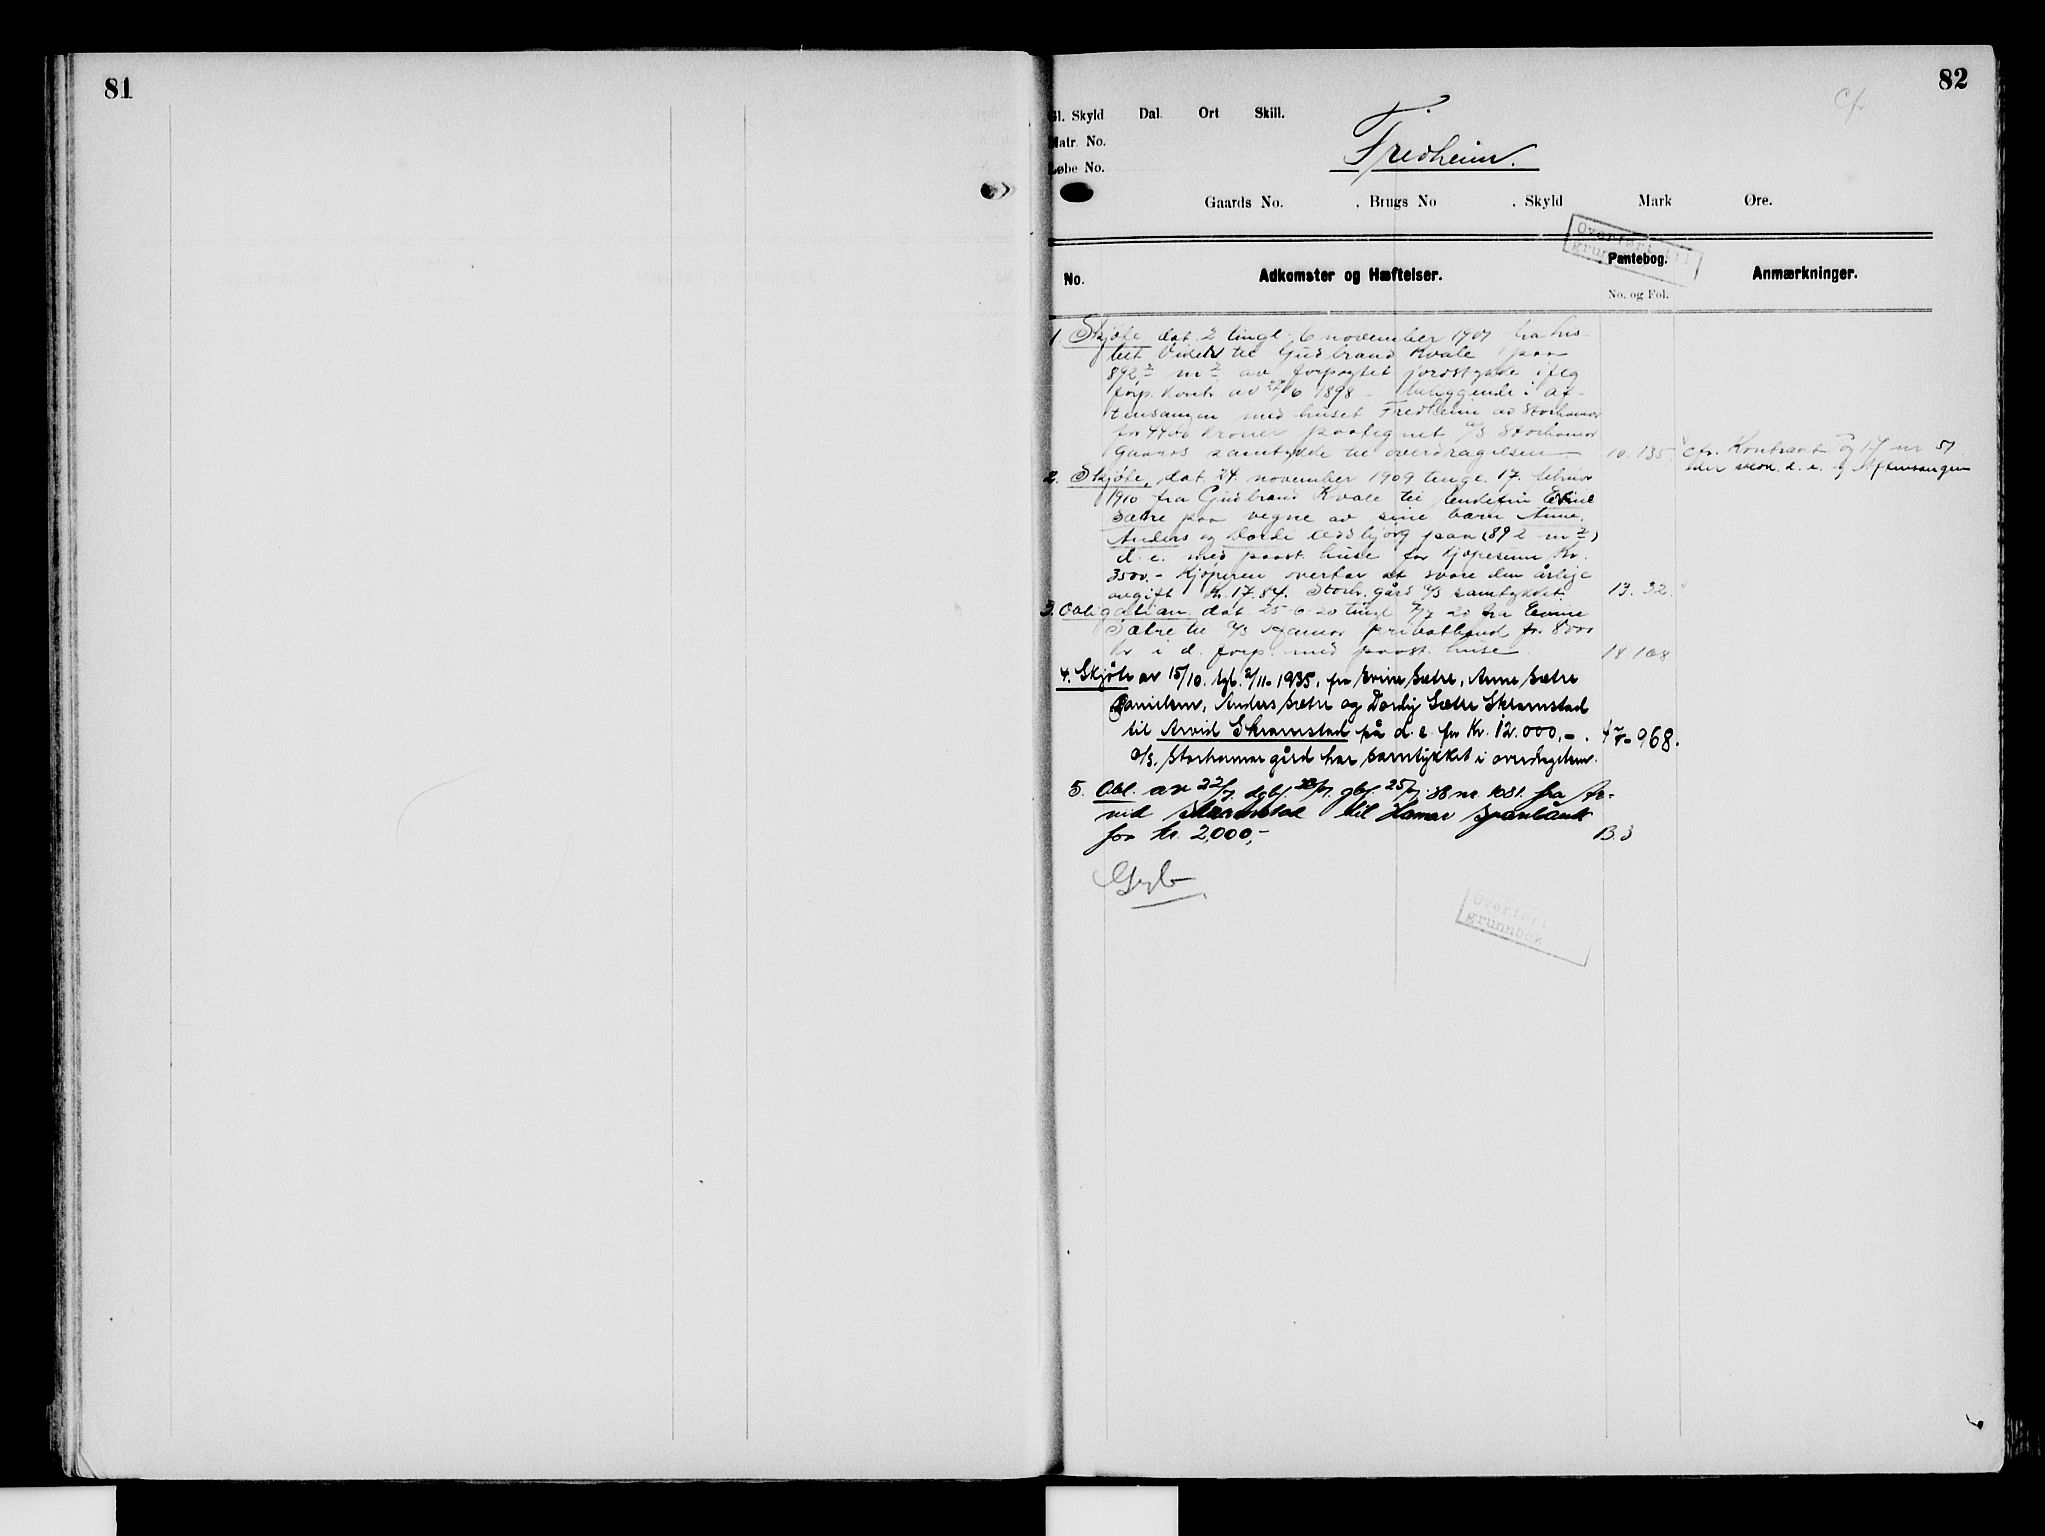 81
82
Cfr
Gl. Skyld Dal. Ort Skill.
Matr. No.
Løbe No.
Fredheim.
Gaards No. , Brugs No , Skyld Mark Øre.
Overført til
grunnbok
No. Adkomster og Hæftelser. Pantebog. Anmærkninger.
No. og Fol.
1 Skjøte dat. 2 tingl. 6 november 1907 fra
til Gudbrand Kvale paa
892 m² av forpagtet jordstykke ifлg
forp. kontr. av 27/6 1898 - beliggende i Af-
tensangen med huset Fredheim av Storhamar
for 4400 kroner paategnet A/S Storhamar
Gaards samtykke til overdragelsen 10. 135 cfr. Kontrakt og 17 nr 51
d. e. og Aftensangen
2. Skjøte, dat. 24. november 1909 tingl. 17. februar
1910 fra Gudbrand Kvale til Evine
Sætre paa vegne av sine barn Anne,
Anders og Dordi Oddbjörg paa (892 m²)
d. e. med paast. huse for kjøpesum kr.
3500.- Kjøperen overtar at svare den årlige
avgift kr. 17.84. Storh. gård A/S samtykket. 13. 32.
3. Obligation dat. 25-6-20 tingl 20 fra Evine
Sætre til A/S Hamar privatbank for 8000
kr i d. forp. med paast. huse. 18 168
4. Skjøte av 15/10. tgl. 2/11-1935, fra Evine Sætre, Anne Sætre
Danielsen, Anders Sætre og Dordy Sætre Skramstad
til Arvid Skramstad på d. e. for Kr. 12.000,-. 47-968.
A/S. Storhamar gård har samtykket i overdragelsen.
5. Obl. av 22/7 dgbf. 23/7. gbf. 25/7.38 nr. 1081. fra Ar-
vid Skramstad til Hamar Sparebank
for kr. 2,000,- B.3
Overført
grunnbok